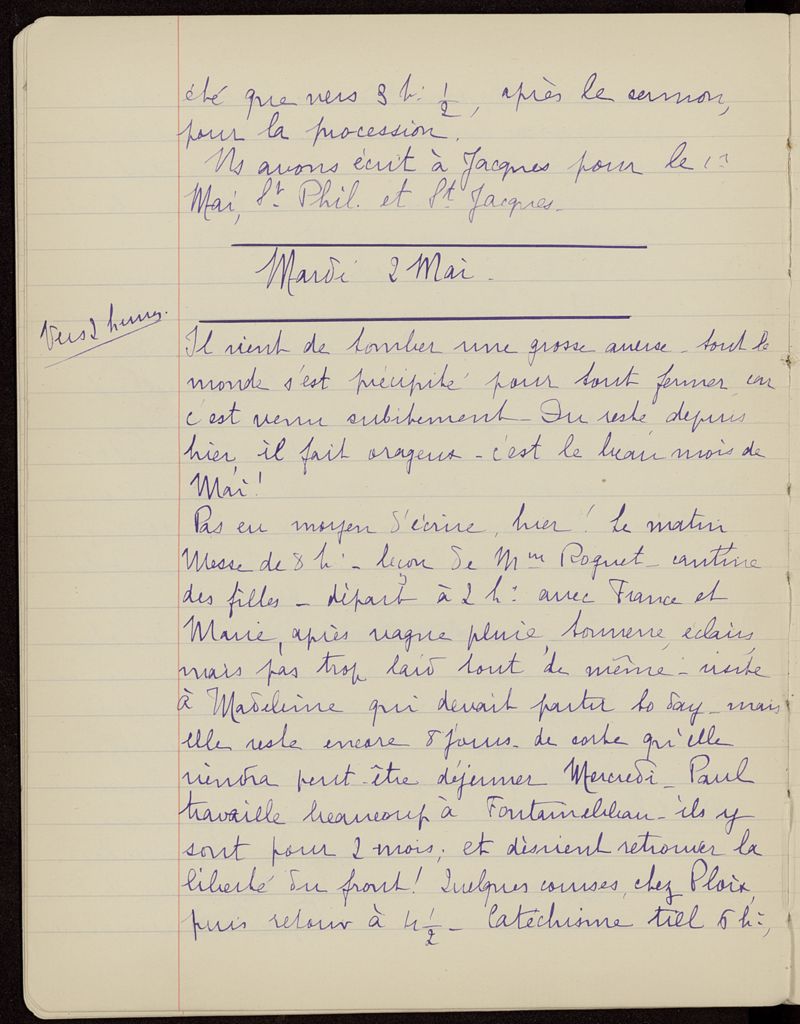 été que vers 3 h: 1/2, après le sermon,
pour la procession.
Ns avons écrit à Jacques pour le 1er
Mai, St Phil. et St Jacques_
Mardi 2 Mai.
Vers 2 heures.
Il vient de tomber une grosse averse_ tout le
monde s'est précipité pour tout fermer, car
c'est venu subitement_ Du reste depuis
hier, il fait orageux_ c'est le beau mois de
Mai!
Pas eu moyen d'écrire, hier! Le matin
Messe de 8 h:_ leçon de Mme Roguet_ cantine
des filles_ départ à 2 h: avec France et
Marie, après vague pluie, tonnerre, éclairs,
mais pas trop laid tout de même_ visite
à Madeleine qui devait partir to day_ mais
elle reste encore 8 jours_ de sorte qu'elle
viendra peut-être déjeuner Mercredi_ Paul
travaille beaucoup à Fontainebleau_ ils y
sont pour 2 mois; et désirent retrouver la
liberté du front! Quelques courses, chez Ploix,
puis retour à 4 1/2_ Catéchisme till 6 h:,